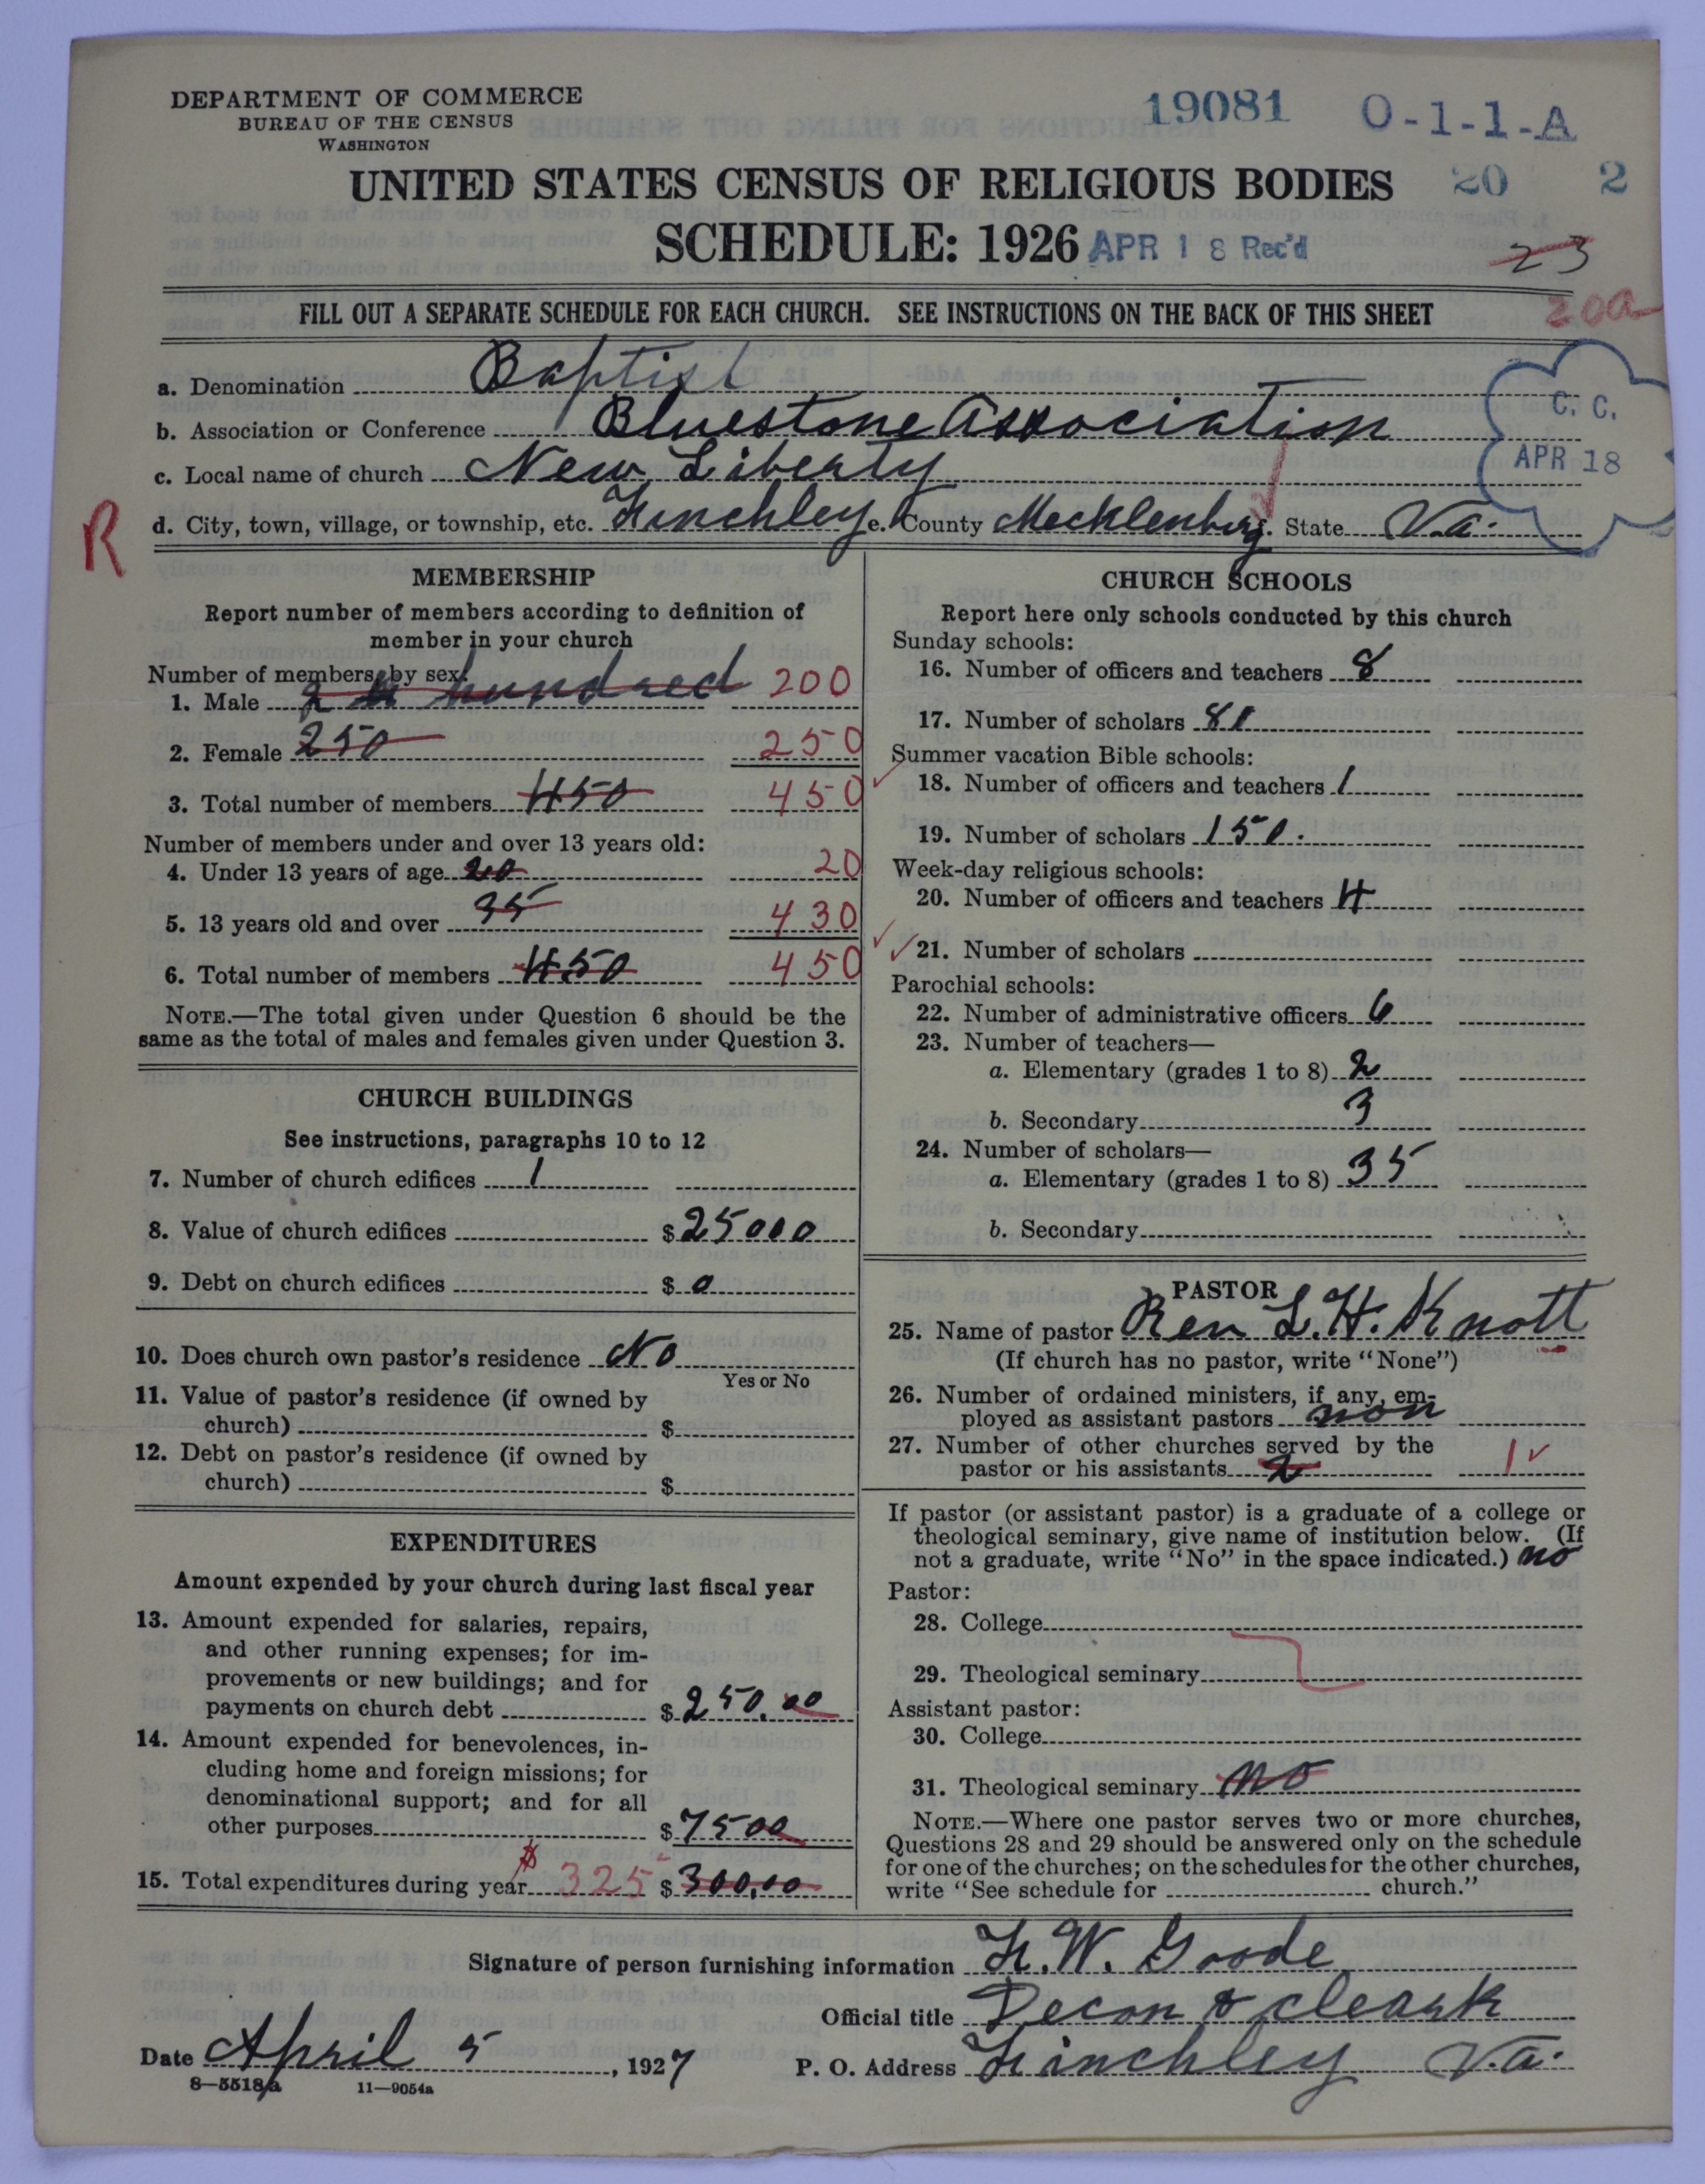 DEPARTMENT OF COMMERCE
BUREAU OF THE CENSUS
WASHINGTON
19081 O-1-1-A
UNITED STATES CENSUS OF RELIGIOUS BODIES 20 2
SCHEDULE: 1926 APR 18 Rec'd 23
FILL OUT A SEPARATE SCHEDULE FOR EACH CHURCH. SEE INSTRUCTIONS ON THE BACK OF THIS SHEET 200
a. Denomination Baptist
b. Association or Conference Bluestone Association
c. Local name of church New Liberty
C. C.
APR 18
R
d. City, town, village, or township, etc. Finchley e. County Mecklenburg f. State Va.
MEMBERSHIP
Report number of members according to definition of
member in your church
Number of members by sex:
1. Male 2 hundred 200
2. Female 250 250
3. Total number of members 450 450
Number of members under and over 13 years old:
4. Under 13 years of age 20 20
5. 13 years old and over 35 430
6. Total number of members 450 450
NOTE.—The total given under Question 6 should be the
same as the total of males and females given under Question 3.
CHURCH BUILDINGS
See instructions, paragraphs 10 to 12
7. Number of church edifices 1
8. Value of church edifices $ 25000
9. Debt on church edifices $ 0
10. Does church own pastor's residence No
Yes or No
11. Value of pastor's residence (if owned by
church) $
12. Debt on pastor's residence (if owned by
church) $
EXPENDITURES
Amount expended by your church during last fiscal year
13. Amount expended for salaries, repairs,
and other running expenses; for im-
provements or new buildings; and for
payments on church debt $ 250.00
14. Amount expended for benevolences, in-
cluding home and foreign missions; for
denominational support; and for all
other purposes $ 7500
15. Total expenditures during year $ 325 $ 300.00
CHURCH SCHOOLS
Report here only schools conducted by this church
Sunday schools:
16. Number of officers and teachers 8
17. Number of scholars 81
Summer vacation Bible schools:
18. Number of officers and teachers 1
19. Number of scholars 150.
Week-day religious schools:
20. Number of officers and teachers 4
21. Number of scholars
Parochial schools:
22. Number of administrative officers 6
23. Number of teachers—
a. Elementary (grades 1 to 8) 2
b. Secondary 3
24. Number of scholars—
a. Elementary (grades 1 to 8) 35
b. Secondary
PASTOR
25. Name of pastor Rev L. H. Knott
(If church has no pastor, write "None")
26. Number of ordained ministers, if any, em-
ployed as assistant pastors non
27. Number of other churches served by the
pastor or his assistants 2 1
If pastor (or assistant pastor) is a graduate of a college or
theological seminary, give name of institution below. (If
not a graduate, write "No" in the space indicated.) no
Pastor:
28. College
29. Theological seminary
Assistant pastor:
30. College
31. Theological seminary no
NOTE.—Where one pastor serves two or more churches,
Questions 28 and 29 should be answered only on the schedule
for one of the churches; on the schedules for the other churches,
write "See schedule for church."
Signature of person furnishing information F. W. Goode
Official title Decon & cleark
Date April 5, 1927 P. O. Address Finchley Va.
8—5518a 11—9054a